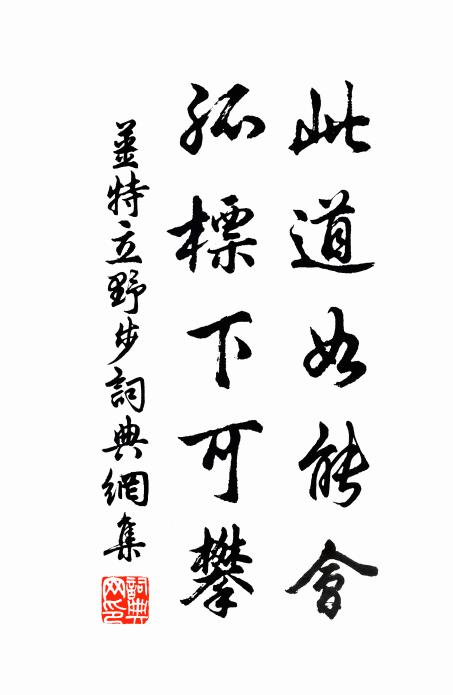 此道如能會
孤標下可攀
薑特立野步詞典網集
詞典网印